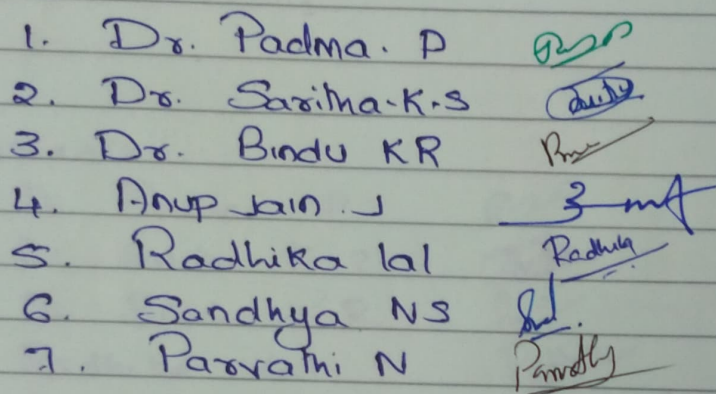 1. Dr. Padma. P
2. Dr. Saritha.K.S
3. Dr. Bindu KR
4. Anup Jain. J
5. Radhika lal Radhika
6. Sandhya NS
7. Parvathi N Parvathy